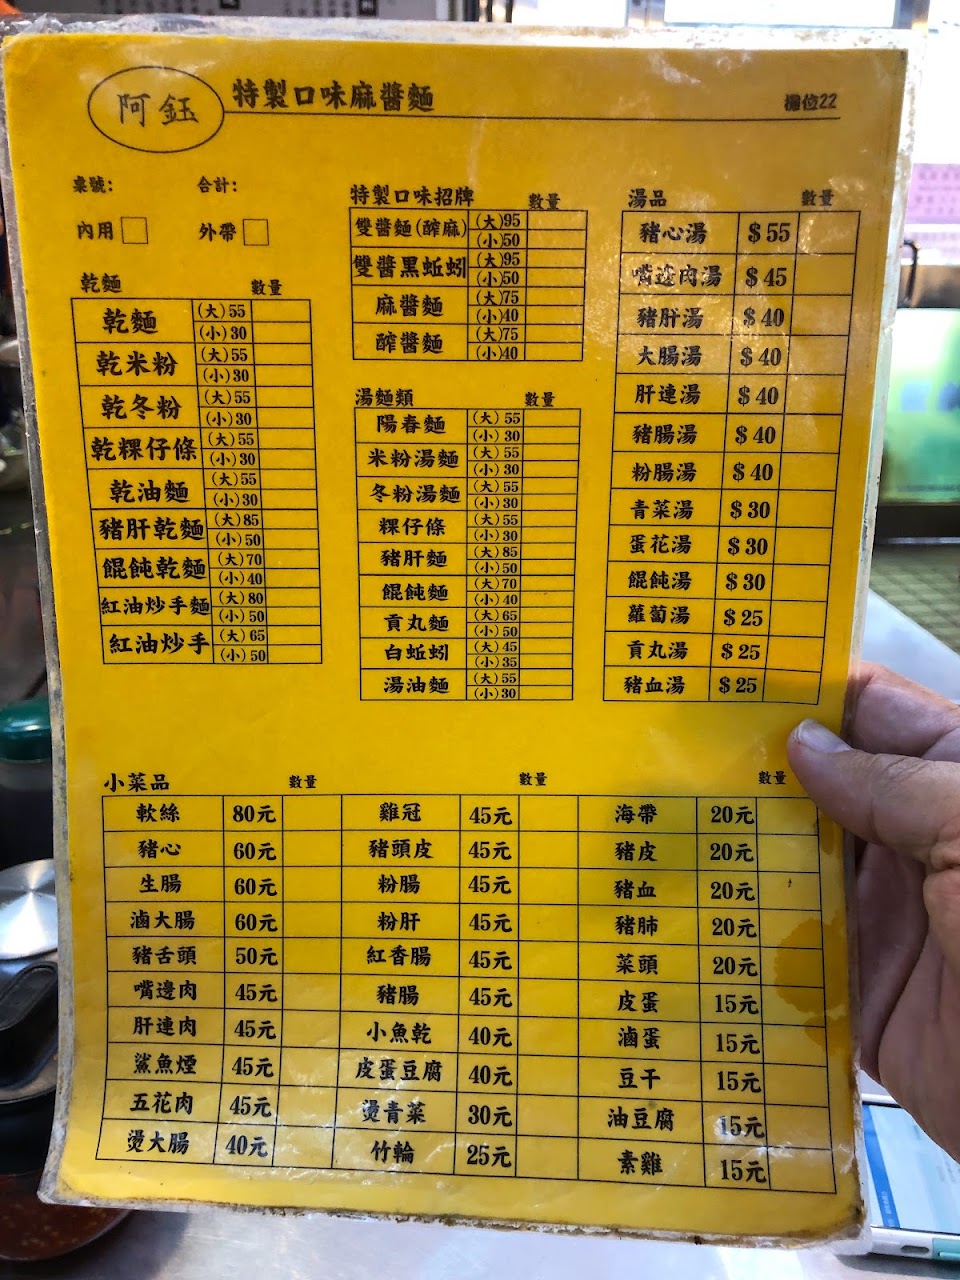 阿鈺 特製口味麻醬麵 攤位22
桌號： 合計：
內用 外帶
乾麵 數量
乾麵 (大)55 (小)30
乾米粉 (大)55 (小)30
乾冬粉 (大)55 (小)30
乾粿仔條 (大)55 (小)30
乾油麵 (大)55 (小)30
豬肝乾麵 (大)85 (小)50
餛飩乾麵 (大)70 (小)40
紅油炒手麵 (大)80 (小)50
紅油炒手 (大)65 (小)50
特製口味招牌 數量
雙醬麵(醡麻) (大)95 (小)50
雙醬黑蚯蚓 (大)95 (小)50
麻醬麵 (大)75 (小)40
醡醬麵 (大)75 (小)40
湯麵類 數量
陽春麵 (大)55 (小)30
米粉湯麵 (大)55 (小)30
冬粉湯麵 (大)55 (小)30
粿仔條 (大)55 (小)30
豬肝麵 (大)85 (小)50
餛飩麵 (大)70 (小)40
貢丸麵 (大)65 (小)50
白蚯蚓 (大)45 (小)35
湯油麵 (大)55 (小)30
湯品 數量
豬心湯 $55
嘴邊肉湯 $45
豬肝湯 $40
大腸湯 $40
肝連湯 $40
豬腸湯 $40
粉腸湯 $40
青菜湯 $30
蛋花湯 $30
餛飩湯 $30
蘿蔔湯 $25
貢丸湯 $25
豬血湯 $25
小菜品 數量 數量 數量
軟絲 80元 雞冠 45元 海帶 20元
豬心 60元 豬頭皮 45元 豬皮 20元
生腸 60元 粉腸 45元 豬血 20元
滷大腸 60元 粉肝 45元 豬肺 20元
豬舌頭 50元 紅香腸 45元 菜頭 20元
嘴邊肉 45元 豬腸 45元 皮蛋 15元
肝連肉 45元 小魚乾 40元 滷蛋 15元
鯊魚煙 45元 皮蛋豆腐 40元 豆干 15元
五花肉 45元 燙青菜 30元 油豆腐 15元
燙大腸 40元 竹輪 25元 素雞 15元